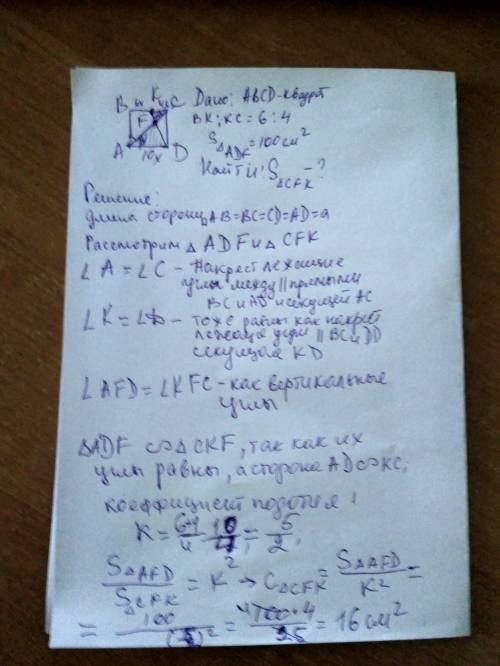 B K C Дано: ABCD-квадрат
F BK:KC=6:4
A 10x D S△ADF=100см²
Найти: S△CFK-?
Решение:
Длина стороны AB=BC=CD=AD=a
Рассмотрим △ ADF и △ CFK
∠A=∠C - Накрест лежащие
углы между || прямыми
BC и AD и секущей AC
∠K=∠D - тоже равны как накрест
лежащие при || BC и
секущая KD
∠AFD=∠KFC - как вертикальные
углы
△ADF ∽ △CKF, так как их
углы равны, а сторона AD∽KC,
коэффициент подобия:
K = (6+4)/4 = 10/4 = 5/2;
S△AFD/S△CFK = K² → S△CFK = S△AFD/K² =
= 100/(5/2)² = 100·4/25 = 16 см²